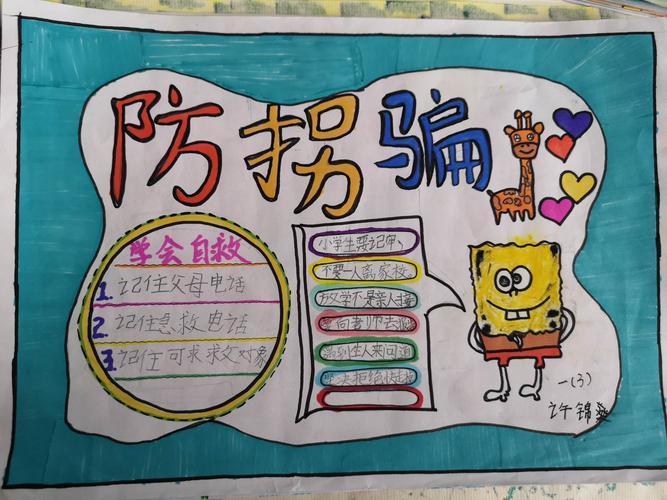 防拐骗
学会自救
1. 记住父母电话
2. 记住急救电话
3. 记住可求救对象
小学生要记牢、
不要一人离家校。
放学不是亲人接
向老师去
遇到生人来问道
坚决拒绝快走
一(3)
许锦